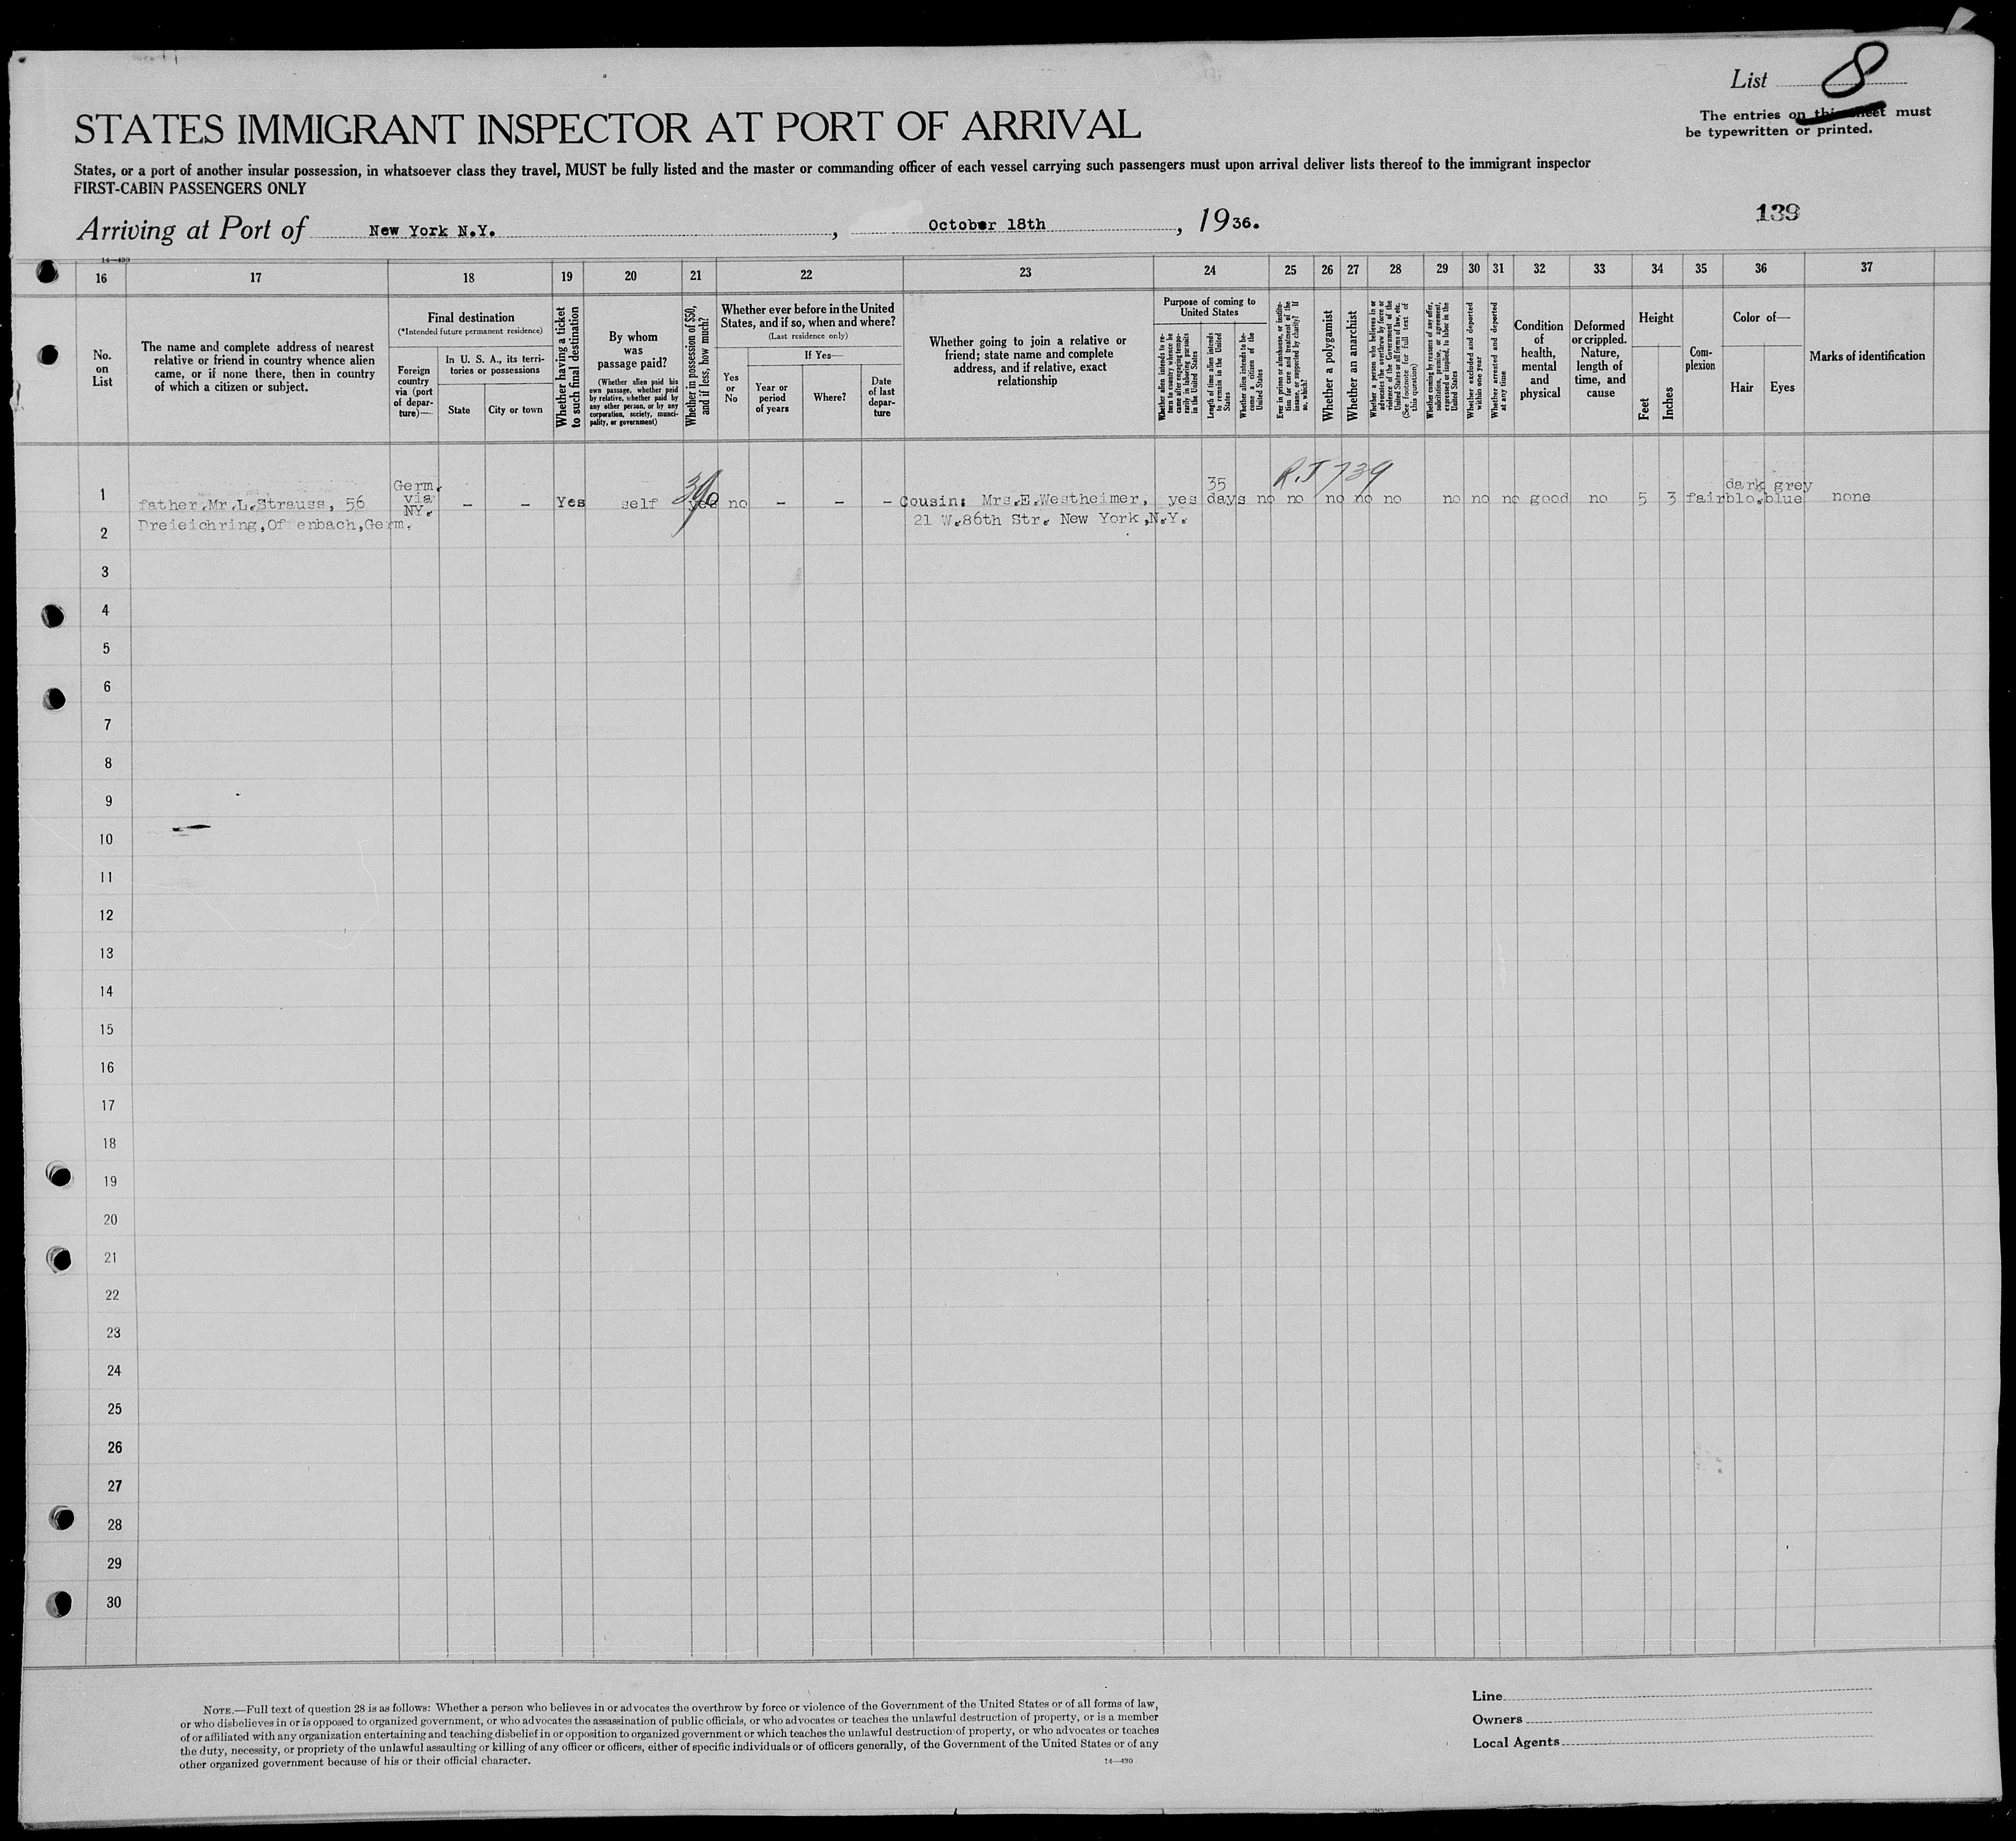 List 8
The entries on this sheet must
be typewritten or printed.
STATES IMMIGRANT INSPECTOR AT PORT OF ARRIVAL
States, or a port of another insular possession, in whatsoever class they travel, MUST be fully listed and the master or commanding officer of each vessel carrying such passengers must upon arrival deliver lists thereof to the immigrant inspector
FIRST-CABIN PASSENGERS ONLY
139
Arriving at Port of New York N.Y. , October 18th , 1936.
14—430
16 17 18 19 20 21 22 23 24 25 26 27 28 29 30 31 32 33 34 35 36 37
No.
on
List
The name and complete address of nearest
relative or friend in country whence alien
came, or if none there, then in country
of which a citizen or subject.
Final destination
(*Intended future permanent residence)
Foreign
country
via (port
of depar-
ture)—
In U. S. A., its terri-
tories or possessions
State
City or town
Whether having a ticket
to such final destination
By whom
was
passage paid?
(Whether alien paid his
own passage, whether paid
by relative, whether paid by
any other person, or by any
corporation, society, munici-
pality, or government)
Whether in possession of $50,
and if less, how much?
Whether ever before in the United
States, and if so, when and where?
(Last residence only)
Yes
or
No
If Yes—
Year or
period
of years
Where?
Date
of last
depar-
ture
Whether going to join a relative or
friend; state name and complete
address, and if relative, exact
relationship
Purpose of coming to
United States
Whether alien intends to re-
turn to country whence he
came after engaging tempo-
rarily in laboring pursuits
in the United States
Length of time alien intends
to remain in the United
States
Whether alien intends to be-
come a citizen of the
United States
Ever in prison or almshouse, or institu-
tion for care and treatment of the
insane, or supported by charity? If
so, which?
Whether a polygamist
Whether an anarchist
Whether a person who believes in or
advocates the overthrow by force or
violence of the Government of the
United States or all forms of law, etc.
(See footnote for full text of
this question)
Whether coming by reasons of any offer,
solicitation, promise, or agreement,
expressed or implied, to labor in the
United States
Whether excluded and deported
within one year
Whether arrested and deported
at any time
Condition
of
health,
mental
and
physical
Deformed
or crippled.
Nature,
length of
time, and
cause
Height
Feet
Inches
Com-
plexion
Color of—
Hair
Eyes
Marks of identification
R.J 739
Germ. 35 dark grey
1 father.Mr.L.Strauss, 56 via NY. – – Yes self yes no – – – Cousin: Mrs.E.Westheimer, yes days no no no no no no no no good no 5 3 fair blo. blue none
2 Dreieichring,Offenbach,Germ. 21 W.86th Str. New York ,N.Y.
3
4
5
6
7
8
9
10
11
12
13
14
15
16
17
18
19
20
21
22
23
24
25
26
27
28
29
30
NOTE.—Full text of question 28 is as follows: Whether a person who believes in or advocates the overthrow by force or violence of the Government of the United States or of all forms of law,
or who disbelieves in or is opposed to organized government, or who advocates the assassination of public officials, or who advocates or teaches the unlawful destruction of property, or is a member
of or affiliated with any organization entertaining and teaching disbelief in or opposition to organized government or which teaches the unlawful destruction of property, or who advocates or teaches
the duty, necessity, or propriety of the unlawful assaulting or killing of any officer or officers, either of specific individuals or of officers generally, of the Government of the United States or of any
other organized government because of his or their official character.
14—430
Line
Owners
Local Agents